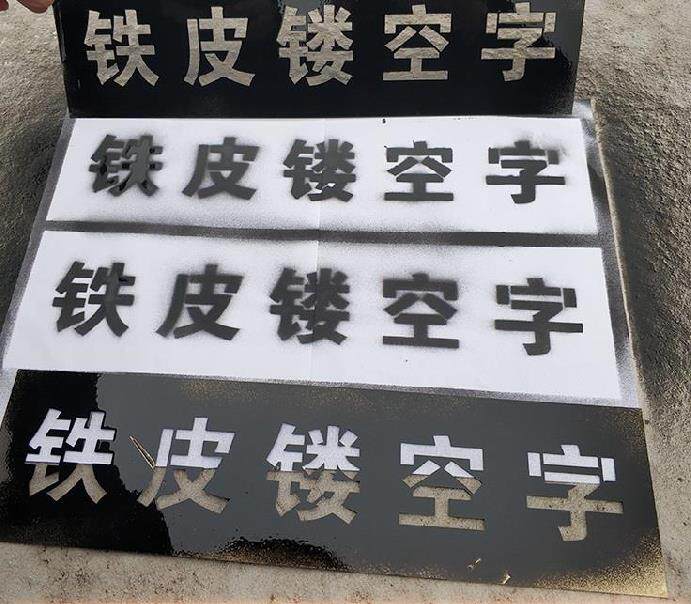 铁皮镂空字
铁皮镂空字
铁皮镂空字
铁皮镂空字